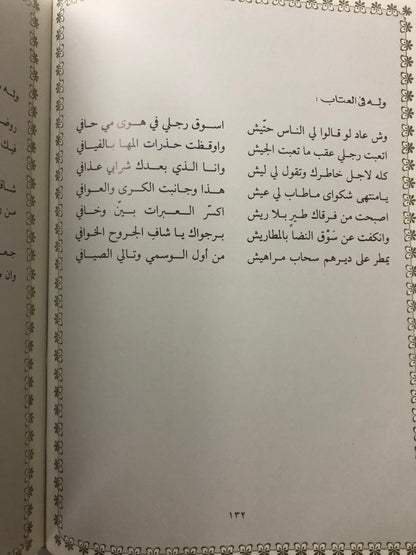 وله في العتاب :
وش عاد لو قالوا لي الناس حتّيش اسوق رجلي في هوى مي حافي
اتعبت رجلي عقب ما تعبت الجيش واوقظت حذرات المها بالفيافي
كله لاجل خاطرك وتقول لي ليش وانا الذي بعدك شرابي عذافي
يامنتهى شكواي ماطاب لي عيش هذا وجانبت الكرى والعوافي
اصبحت من فرقاك طير بلا ريش اكسّر العبرات بينّ وخافي
وانكفت عن سَوْق النضا بالمطاريش برجواك يا شافِ الجروح الخوافي
يمطر على ديرهم سحاب مراهيش من أول الوسمي وتالي الصيافي
١٣٢
وله في
روض
فيك
شاقـ
من ر
جعـ
وان ط